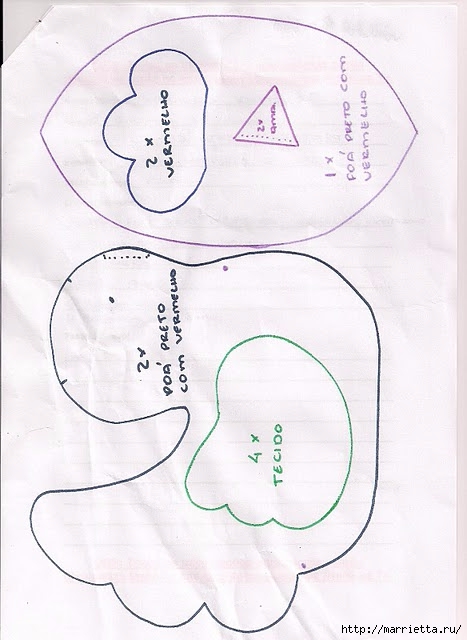 2 x
VERMELHO
2x
AMA.
1 x
POÁ PRETO COM
VERMELHO
2x
POÁ PRETO
COM VERMELHO
4 x
TECIDO
http://marrietta.ru/